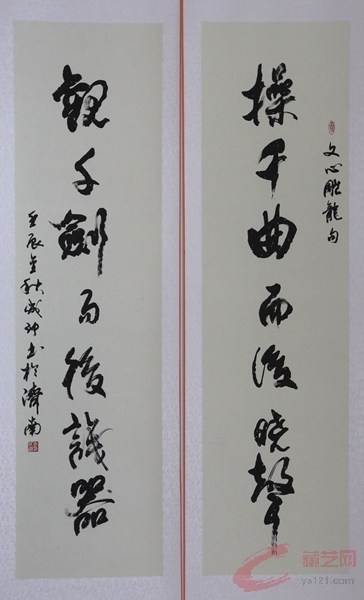 文心雕龍句
操千曲而後晓聲
觀千劍而後識器
壬辰金秋书於濟南
藏艺网
ya121.com